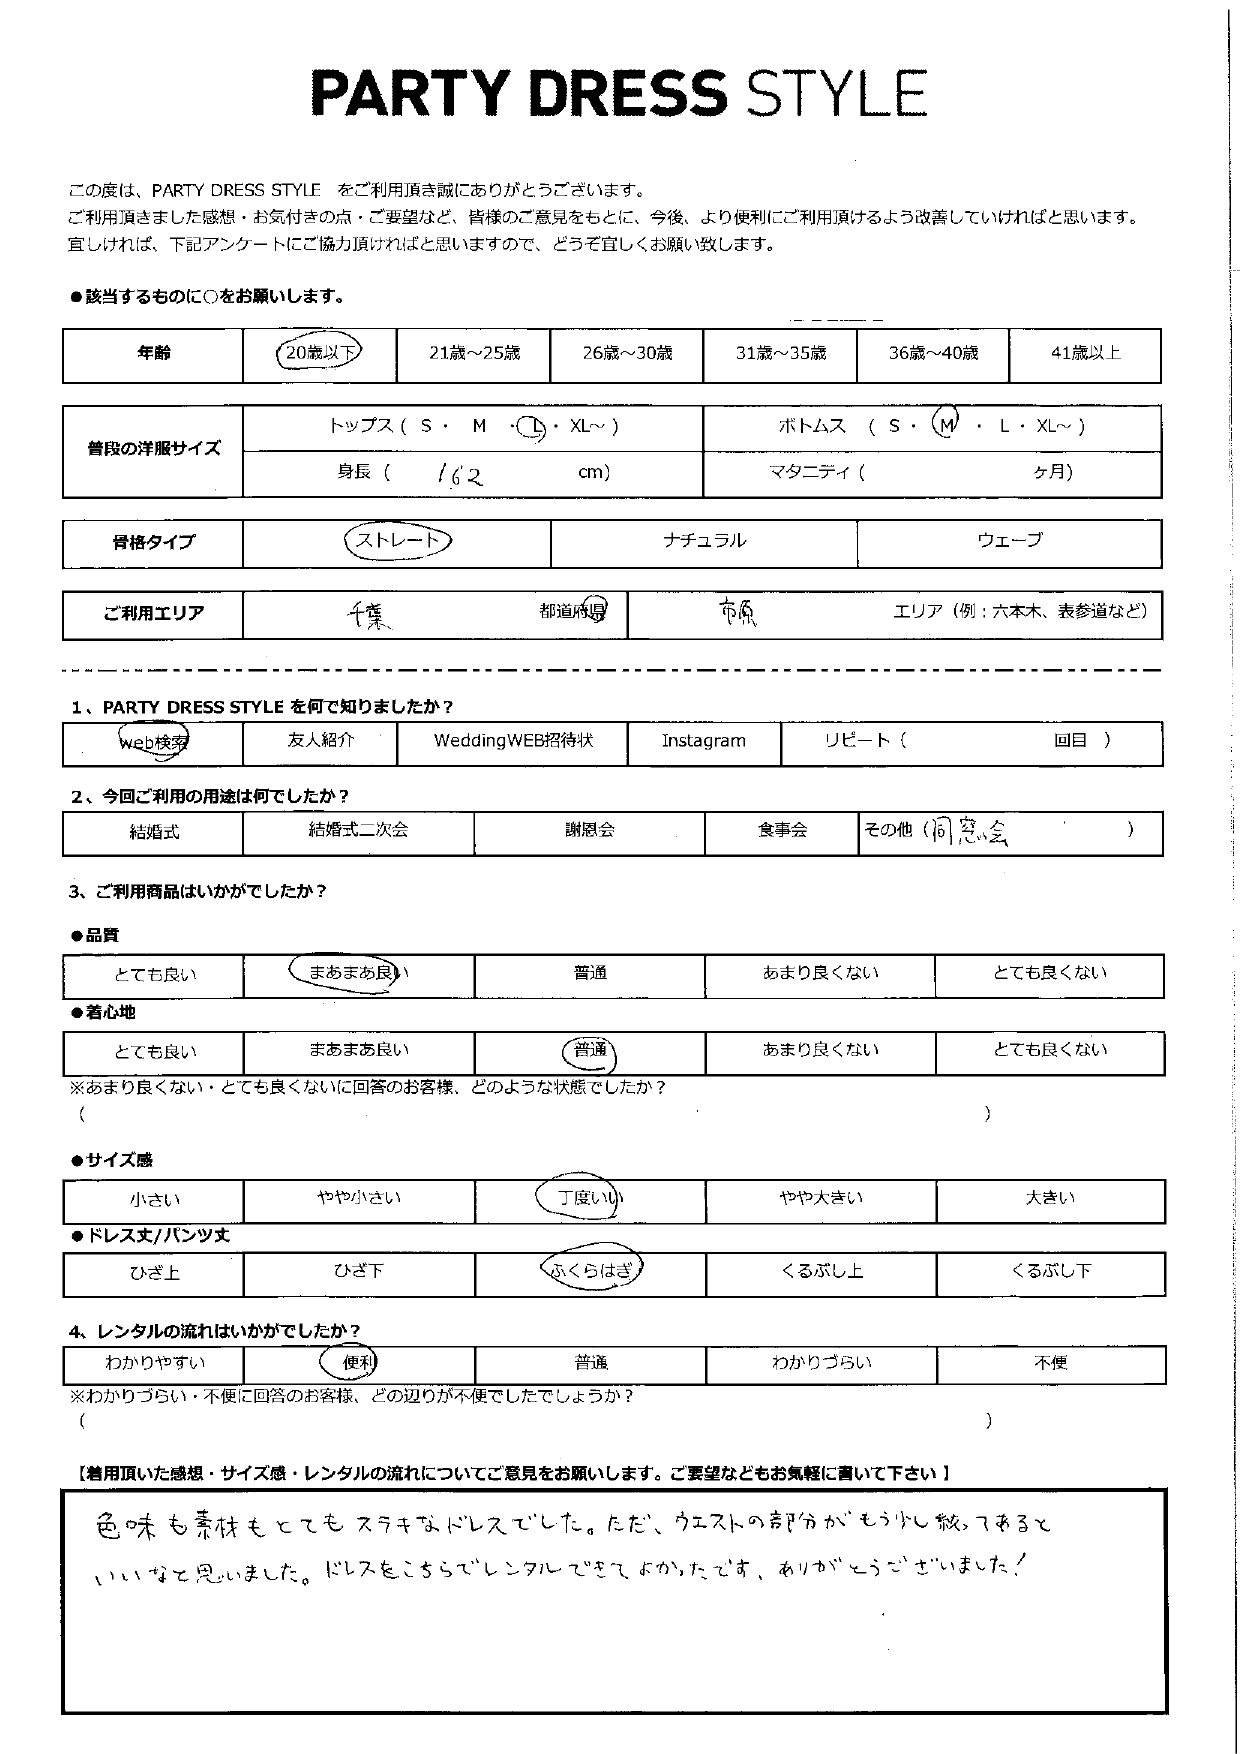 PARTY DRESS STYLE
この度は、PARTY DRESS STYLE をご利用頂き誠にありがとうございます。
ご利用頂きました感想・お気付きの点・ご要望など、皆様のご意見をもとに、今後、より便利にご利用頂けるよう改善していければと思います。
宜しければ、下記アンケートにご協力頂ければと思いますので、どうぞ宜しくお願い致します。
●該当するものに○をお願いします。
年齢 20歳以下 21歳～25歳 26歳～30歳 31歳～35歳 36歳～40歳 41歳以上
普段の洋服サイズ
トップス ( S ・ M ・ L ・ XL～ ) ボトムス ( S ・ M ・ L ・ XL～ )
身長 ( 162 cm) マタニティ ( ヶ月)
骨格タイプ ストレート ナチュラル ウェーブ
ご利用エリア 千葉 都道府県 市原 エリア（例：六本木、表参道など）
1、PARTY DRESS STYLE を何で知りましたか？
web検索 友人紹介 WeddingWEB招待状 Instagram リピート ( 回目 )
2、今回ご利用の用途は何でしたか？
結婚式 結婚式二次会 謝恩会 食事会 その他 (同窓会 )
3、ご利用商品はいかがでしたか？
●品質
とても良い まあまあ良い 普通 あまり良くない とても良くない
●着心地
とても良い まあまあ良い 普通 あまり良くない とても良くない
※あまり良くない・とても良くないに回答のお客様、どのような状態でしたか？
( )
●サイズ感
小さい やや小さい 丁度いい やや大きい 大きい
●ドレス丈/パンツ丈
ひざ上 ひざ下 ふくらはぎ くるぶし上 くるぶし下
4、レンタルの流れはいかがでしたか？
わかりやすい 便利 普通 わかりづらい 不便
※わかりづらい・不便に回答のお客様、どの辺りが不便でしたでしょうか？
( )
【着用頂いた感想・サイズ感・レンタルの流れについてご意見をお願いします。ご要望などもお気軽に書いて下さい 】
色味も素材もとてもステキなドレスでした。ただ、ウエストの部分がもう少し絞ってあると
いいなと思いました。ドレスをこちらでレンタルできてよかったです、ありがとうございました！